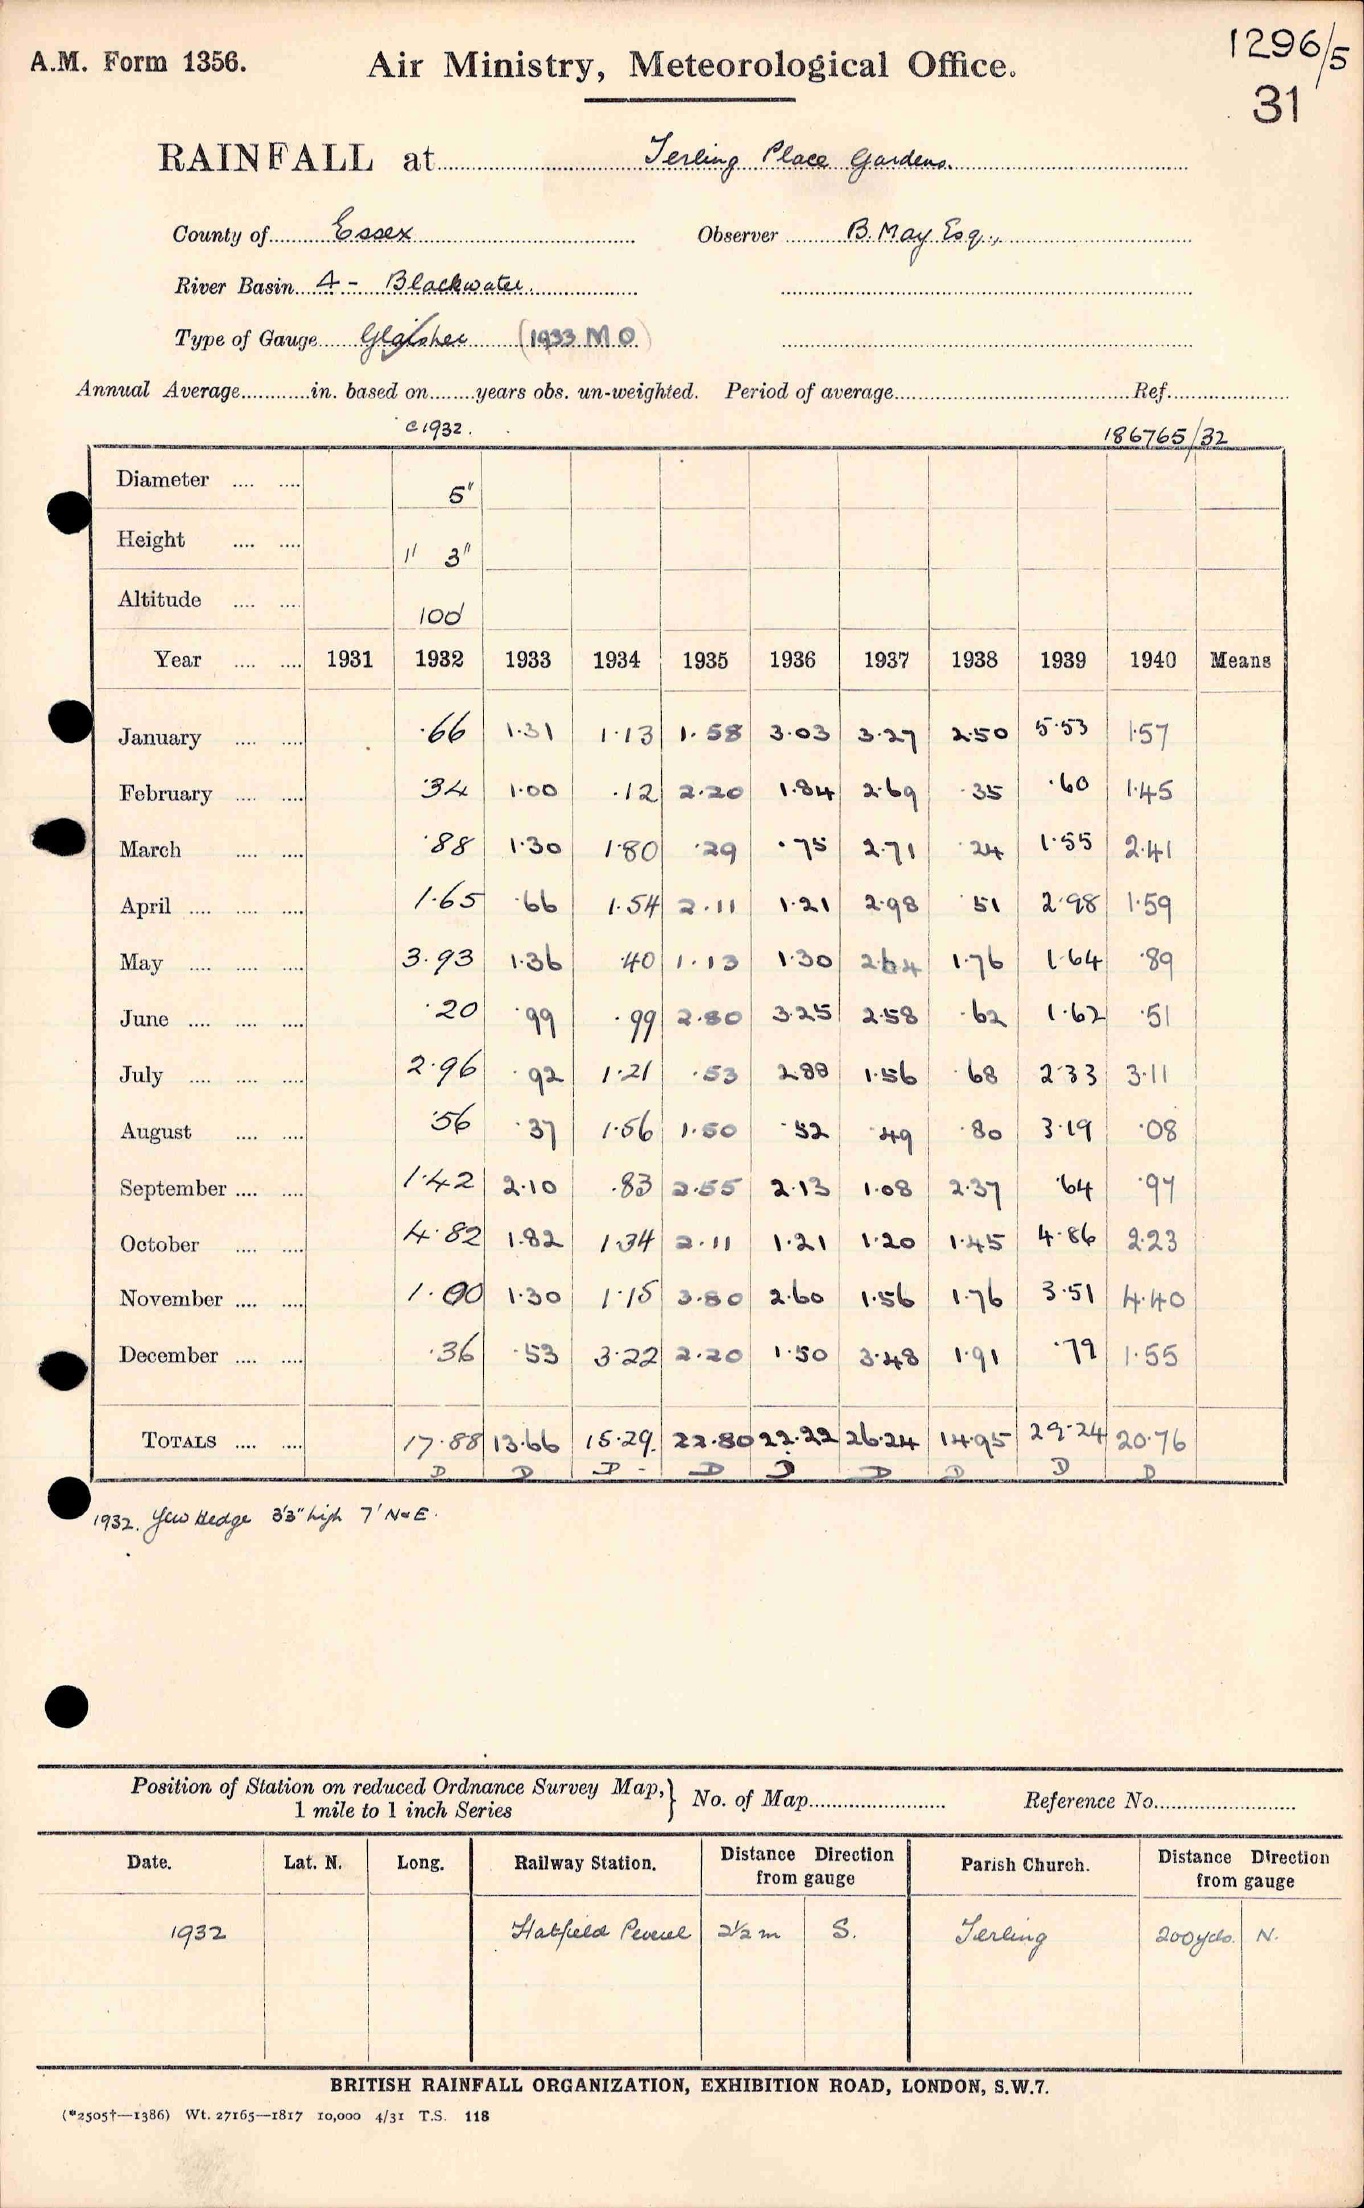 A.M. Form 1356.
Air Ministry, Meteorological Office.
1296/5
31
RAINFALL at Terling Place Gardens.
County of Essex Observer B. May Esq.,
River Basin 4 - Blackwater.
Type of Gauge Glaisher (1933 M O)
Annual Average in. based on years obs. un-weighted. Period of average Ref.
c 1932. 186765/32
Diameter 5"
Height 1' 3"
Altitude 100
Year 1931 1932 1933 1934 1935 1936 1937 1938 1939 1940 Means
January ·66 1·31 1·13 1·58 3·03 3·27 2·50 5·53 1·57
February ·34 1·00 ·12 2·20 1·84 2·69 ·35 ·60 1·45
March ·88 1·30 1·80 ·29 ·75 2·71 ·24 1·55 2·41
April 1·65 ·66 1·54 2·11 1·21 2·98 ·51 2·98 1·59
May 3·93 1·36 ·40 1·13 1·30 2·64 1·76 1·64 ·89
June ·20 ·99 ·99 2·80 3·25 2·58 ·62 1·62 ·51
July 2·96 ·92 1·21 ·53 2·88 1·56 ·68 2·33 3·11
August ·56 ·37 1·56 1·50 ·52 ·49 ·80 3·19 ·08
September 1·42 2·10 ·83 2·55 2·13 1·08 2·37 ·64 ·97
October 4·82 1·82 1·34 2·11 1·21 1·20 1·45 4·86 2·23
November 1·00 1·30 1·15 3·80 2·60 1·56 1·76 3·51 4·40
December ·36 ·53 3·22 2·20 1·50 3·48 1·91 ·79 1·55
TOTALS 17·88 13·66 15·29 22·80 22·22 26·24 14·95 29·24 20·76
D D D D D D D D D
1932. Yew Hedge 3'3" high 7' N & E.
Position of Station on reduced Ordnance Survey Map, 1 mile to 1 inch Series } No. of Map Reference No.
Date. Lat. N. Long. Railway Station. Distance Direction from gauge Parish Church. Distance Direction from gauge
1932 Hatfield Peverel 2½ m S. Terling 200 yds. N.
BRITISH RAINFALL ORGANIZATION, EXHIBITION ROAD, LONDON, S.W.7.
(*2505†—1386) Wt. 27165—1817 10,000 4/31 T.S. 118